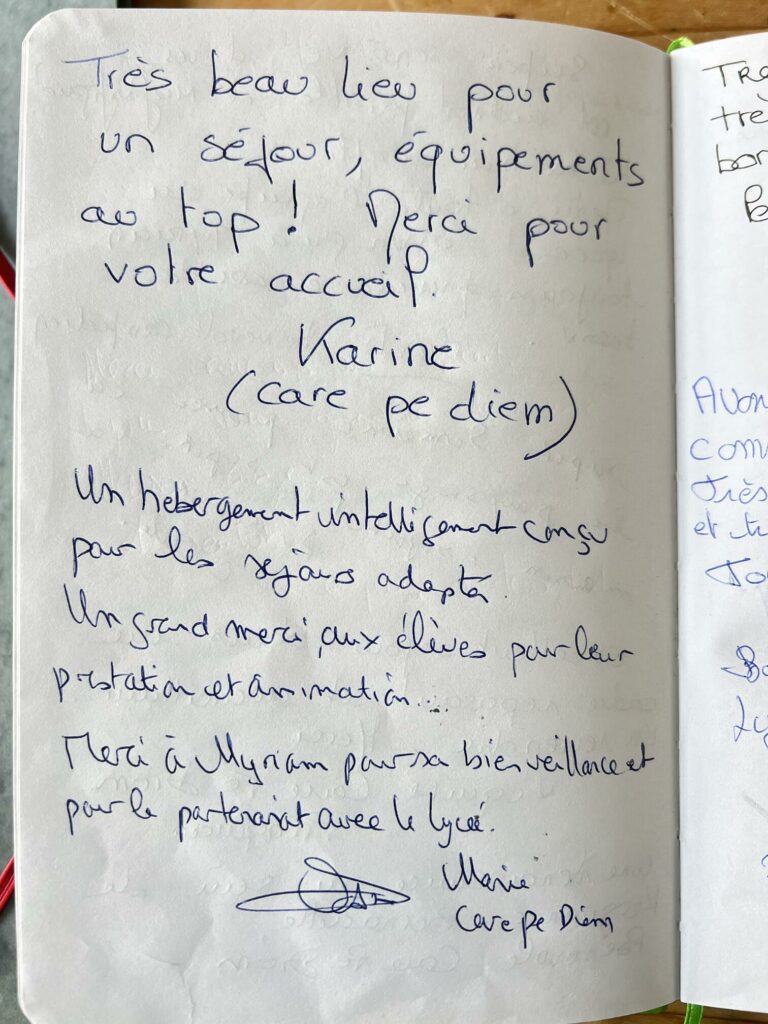 Très beau lieu pour
un séjour, équipements
au top ! Merci pour
votre accueil.
Karine
(care pe diem)
Un hebergement intelligement conçu
pour les séjours adaptés.
Un grand merci aux élèves pour leur
prestation et animation...
Merci à Myriam pour sa bienveillance et
pour le partenariat avec le lycée.
Marie
Care pe Diem
Tre
trè
bon
Avon
com
Très
et tr